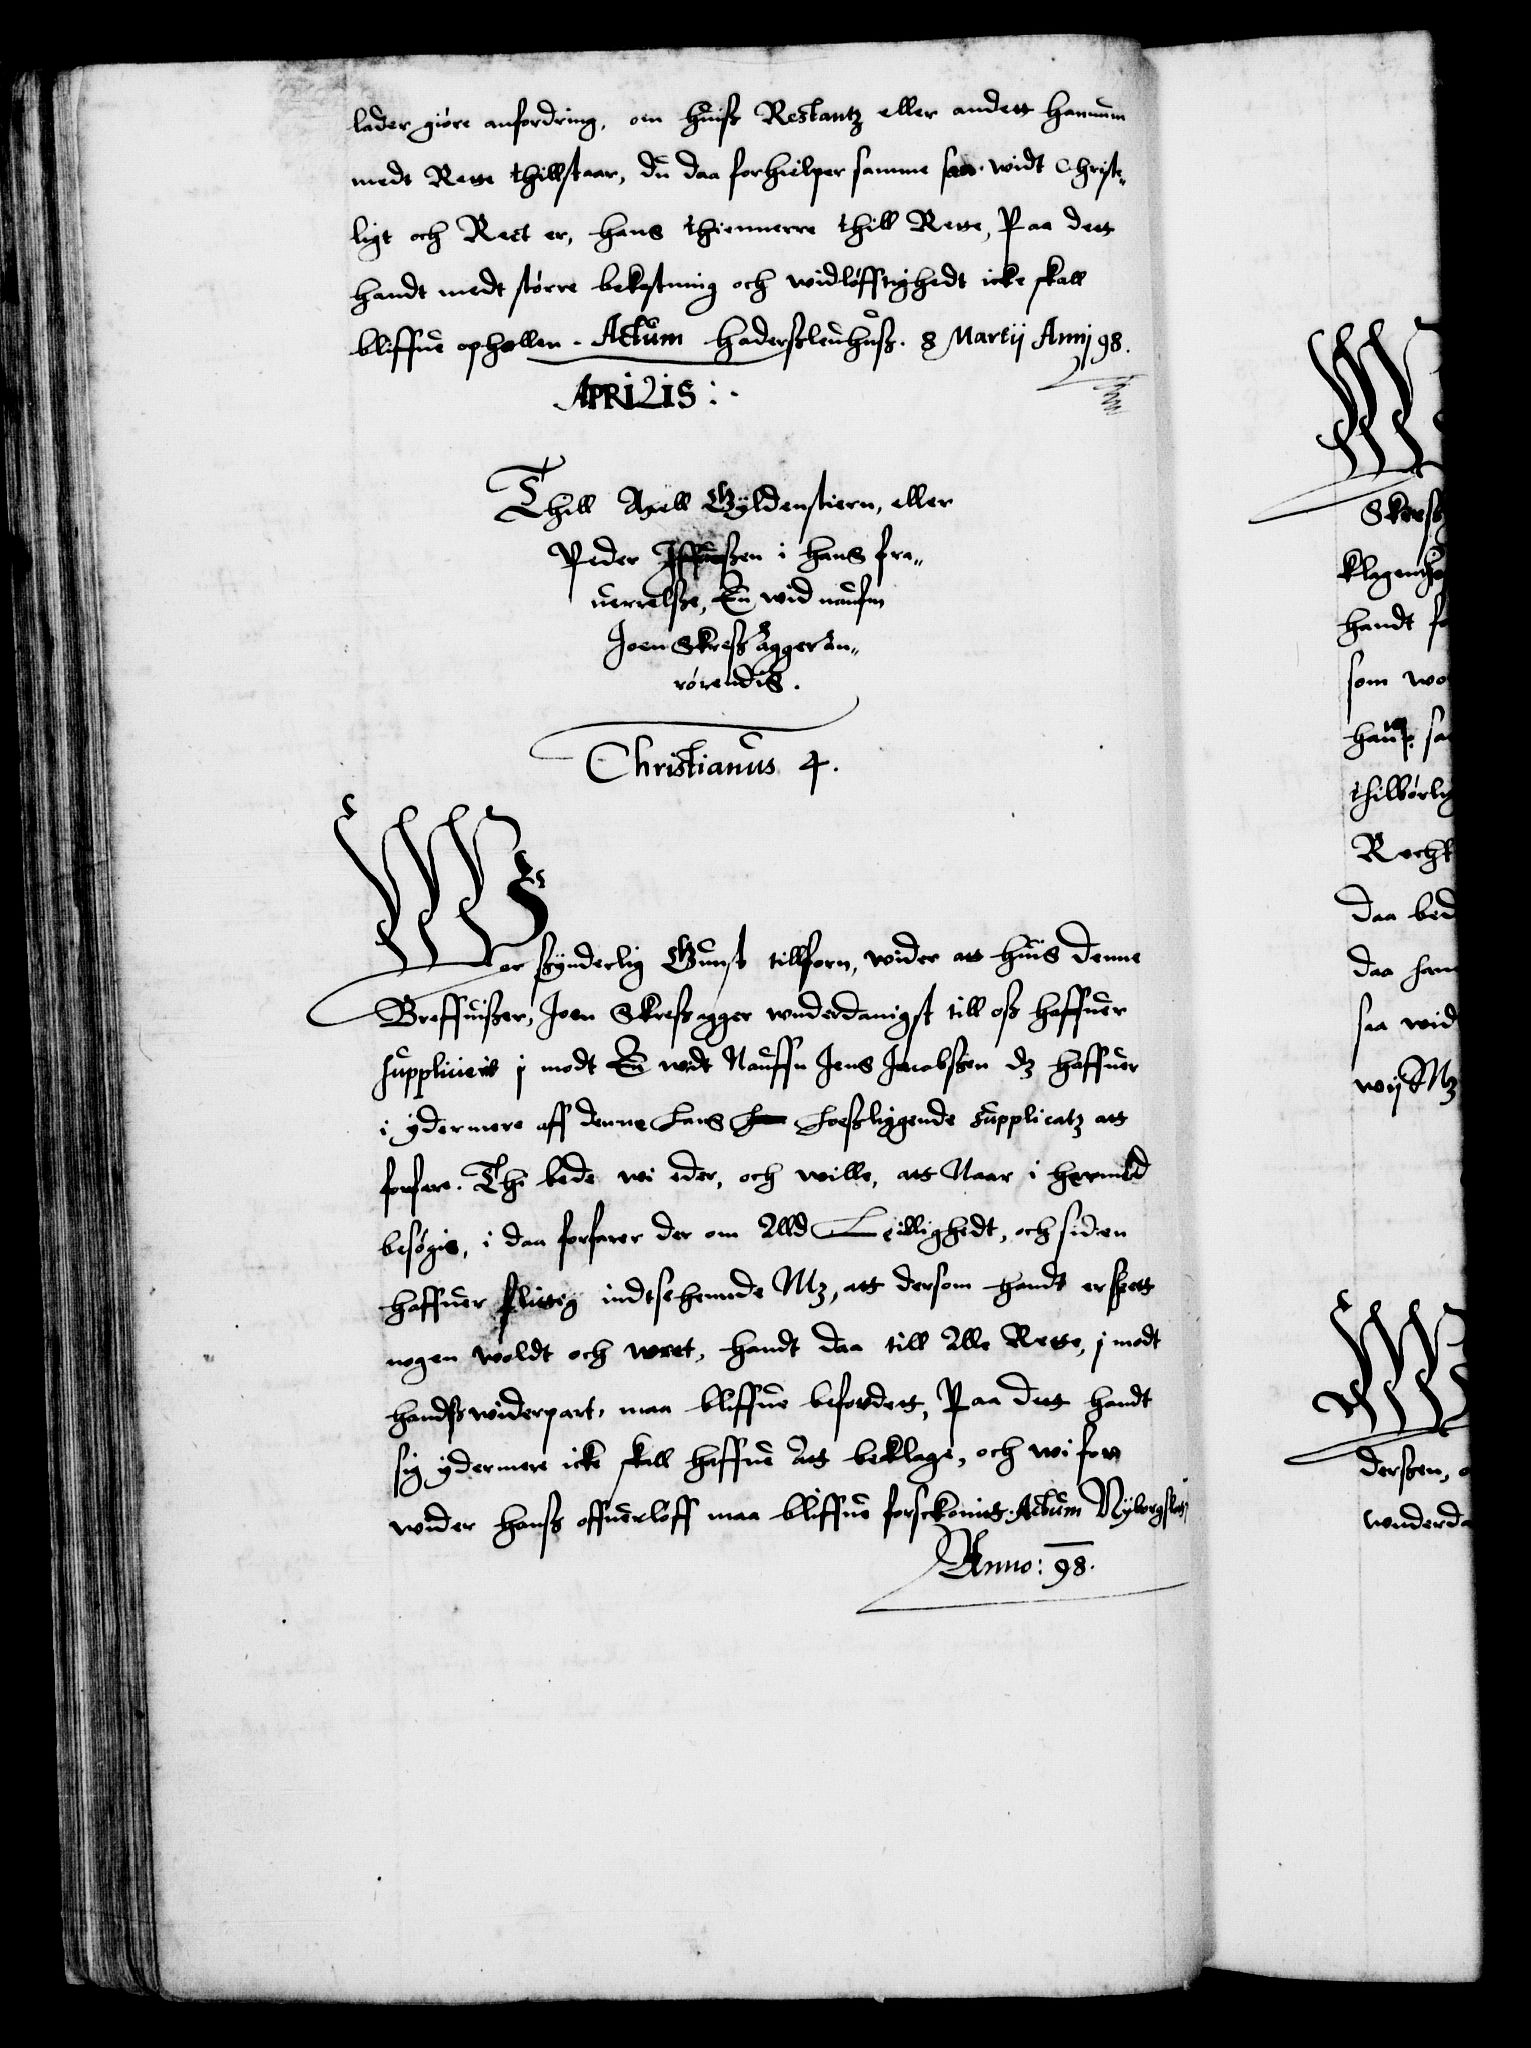 lader giøre anfordring, om huiß Restantz eller andett hannum
medt Rette thillstaar, du daa forhielper samme saa widt Christe„
ligt och Rect er, hans thiennerre thill Rette, Paa dett
handt medt større bekostning och widløfftighedt icke skall
bliffue opholden. Actum Haderßleuhuß. 8 Martij Anni 98.
APRILIS:
Thill Axell Gyldenstiern, eller
Peder Iffuerßen i hans fra„
uerrelße, En wid naufn
Joen Skreßagger an„
rørendis.
Christianus 4.
Wor synderlig Gunst tillforn, wider att huis denne
Breffuißer, Joen Skreßagger wnderdanigst till oß haffuer
suppliceris j modt En widt Nauffn Jens Jacobßen dz haffuer
i ydermere aff denne hans hoeßliggende supplicatz att
forfare. Thi bede wi eder, och wille, att Naar i hermed
besøgis, i daa forfarer der om Alld Leilighedt, och siden
haffuer flittig indtseehennde Mz, att dersom handt er skett
nogen woldt och wret, handt daa till Alle Rette, j modt
handß widerpart, maa bliffue befordett, Paa dett handt
sig ydermere icke skall haffue Att beklage, och wi for
wider hanß offuerløff maa bliffue forskonit. Actum Nyborgslott
Anno: 98.
Skreß
klagend
handt
som
sa
thilbørlig
Recht
daa
daa
saa wid
wij Mz
derßen,
wnderda